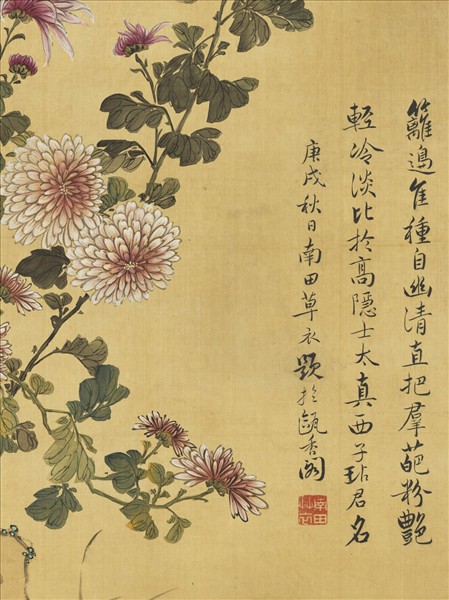 籬邊佳種自幽清直把羣葩粉艷
輕冷淡比於高隱士太真西子玷君名
庚戌秋日南田草衣題於甌香閣
南田
艸衣